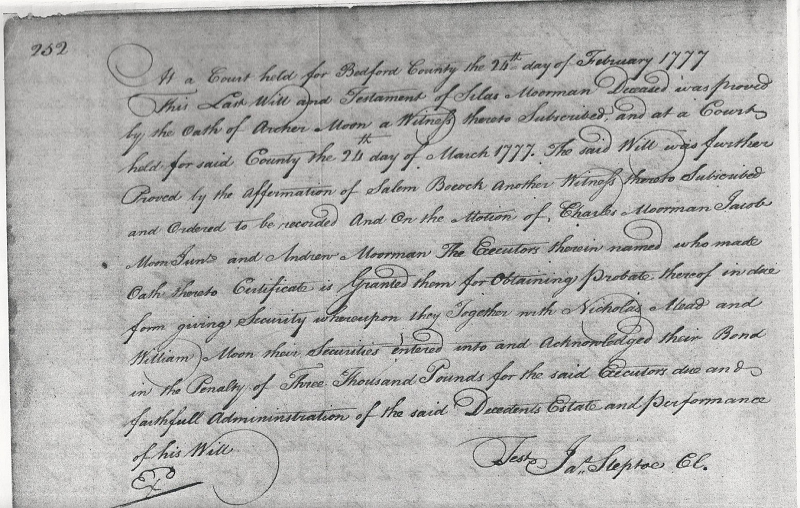 252
At a Court held for Bedford County the 24th day of February 1777
This Last Will and Testament of Silas Moorman Deceased was proved
by the Oath of Archer Moon a Witness thereto Subscribed, and at a Court
held for said County the 24th day of March 1777. The said Will was further
Proved by the Affermation of Salem Bocock Another Witness thereto Subscribed
and Ordered to be recorded And On the Motion of, Charles Moorman Jacob
Moon Junr. and Andrew Moorman The Executors therein named who made
Oath thereto Certificate is Granted them for Obtaining Probate thereof in due
form giving Security whereupon they Together with Nicholas Mead and
William Moon their Securities entered into and Acknowledged their Bond
in the Penalty of Three Thousand Pounds for the said Executors due and
faithfull Admininstration of the said Decedents Estate and performance
of his Will
Test Jas. Steptoe Cl.
Exd